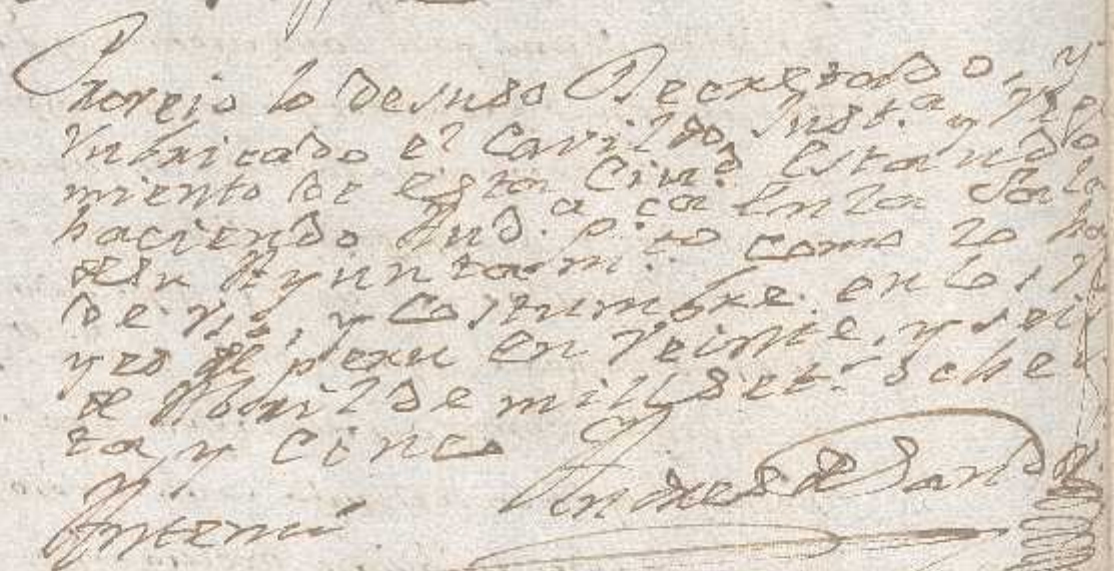 Proveio lo desuso Decretado, y
rubricado el Cavildo, Just.ª y Reg
miento de esta Ciu.d estando
haciendo Aud.ª p.ca en la Sala
de su Ayuntam.to como lo ha
de uso, y costumbre. en los R
yes del peru en Veinte, y seis
de Abril de mill set.s oche
ta y cinco
Antemi Andres de Sand